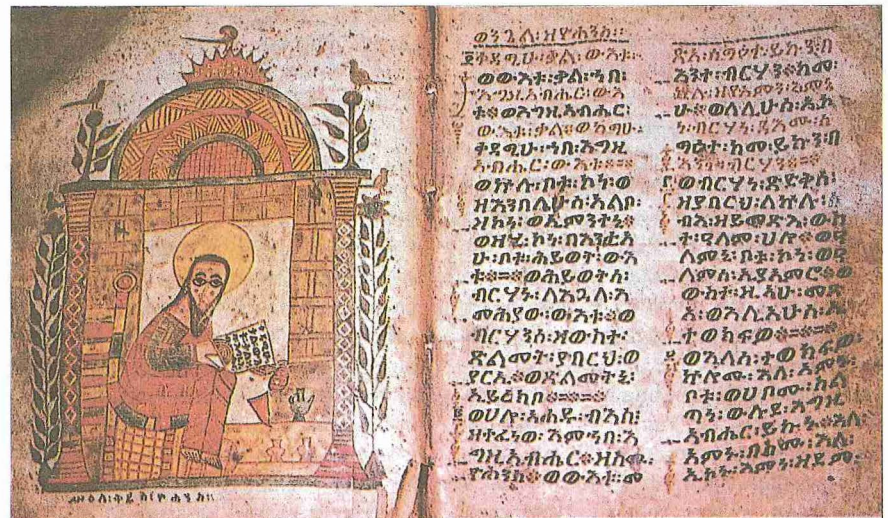 ወንጌል፡ዘዮሐንስ።
ቀዳሚሁ፡ቃል፡ውእቱ፡
ወውእቱ፡ቃል፡ኀበ፡
እግዚአብሔር፡ውእ
ቱ፡ወእግዚአብሔር፡
ውእቱ፡ቃል፡
ቀዳሚሁ፡ኀበ፡እግዚ
አብሔር፡ውእቱ።
ወኵሉ፡ቦቱ፡ኮነ፡ወ
ዘእንበሌሁሰ፡አልቦ፡
ዘኮነ፡ወኢምንትኒ።
ወዘሂ፡ኮነ፡በእንቲአ
ሁ፡ቦቱ፡ሕይወት፡ውእ
ቱ።ወሕይወትሰ፡
ብርሃኑ፡ለእጓለ፡እ
መሕያው፡ውእቱ።ወ
ብርሃንሰ፡ዘውስተ፡
ጽልመት፡ያበርህ፡ወ
ያርኢ።ወጽልመትኒ፡
ኢይረክቦ።
ወሀሎ፡አሐዱ፡ብእሲ፡
ዘተፈነወ፡እምኀበ፡እ
ግዚአብሔር፡ዘስሙ፡
ዮሐንስ።ወውእቱ፡መ
ጽአ፡ለስምዕት፡ይኩን፡በ
እንተ፡ብርሃን፡ከመ፡
ኵሉ፡ዘየአምን፡እምኔ
ሁ።ወለሊሁሰ፡ኢኮ
ነ፡ብርሃነ፡ዳእሙ፡ለ
ስምዕት፡ከመ፡ይኩን፡በ
እንተ፡ብርሃን።
ወብርሃነ፡ጽድቅሰ፡
ዘያበርህ፡ለኵሉ፡ሰ
ብእ፡ዘይመጽእ፡ውስ
ተ፡ዓለም፡ሀሎ።ወዓ
ለምኒ፡ቦቱ፡ኮነ፡ወዓ
ለምሰ፡ኢያእመሮ።ወ
ውስተ፡ዚአሁ፡መጽ
አ፡ወእሊአሁሰ፡ኢ
ተወክፍዎ።
ወእለሰ፡ተወክፍዎ፡
ኵሎሙ፡እለ፡አምኑ፡
ቦቱ፡ወሀቦሙ፡ስል
ጣነ፡ውሉደ፡እግዚ
አብሔር፡ይኩኑ።እለ፡
አምኑ፡በስሙ፡እለ፡
ኢኮኑ፡እምነ፡ዘደም፡